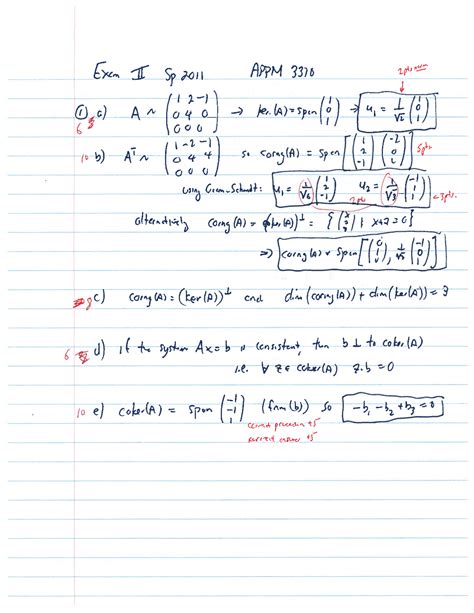 Exam II Sp 2011 APPM 3310
2pts
① a) A ~ (1 2 -1 / 0 4 0 / 0 0 0) → ker(A) = span (1 / 0 / 1) → u₁ = 1/√2 (1 / 0 / 1)
6
10 b) Aᵀ ~ (1 -2 -1 / 0 4 4 / 0 0 0) so corng(A) = span [(1 / 2 / -1) (-2 / 0 / )] 5pts
using Gram-Schmidt: u₁ = 1/√6 (1 / 2 / -1) u₂ = 1/√3 (-1 / 1 / 1) 3pts
2pts
alternatively corng(A) = (ker(A))^⊥ = { (x / y / z) | x+z=0 }
⇒ corng(A) = span [(0 / 1 / ), 1/√2 (-1 / 0 / 1)]
8 c) corng(A) = (ker(A))^⊥ and dim(corng(A)) + dim(ker(A)) = 3
6 d) if the system Ax=b is consistent, then b ⊥ to coker(A)
i.e. ∀ z ∈ coker(A) z·b = 0
10 e) coker(A) = span (-1 / -1 / 1) (from (b)) so -b₁ - b₂ + b₃ = 0
correct procedure +5
correct answer +5